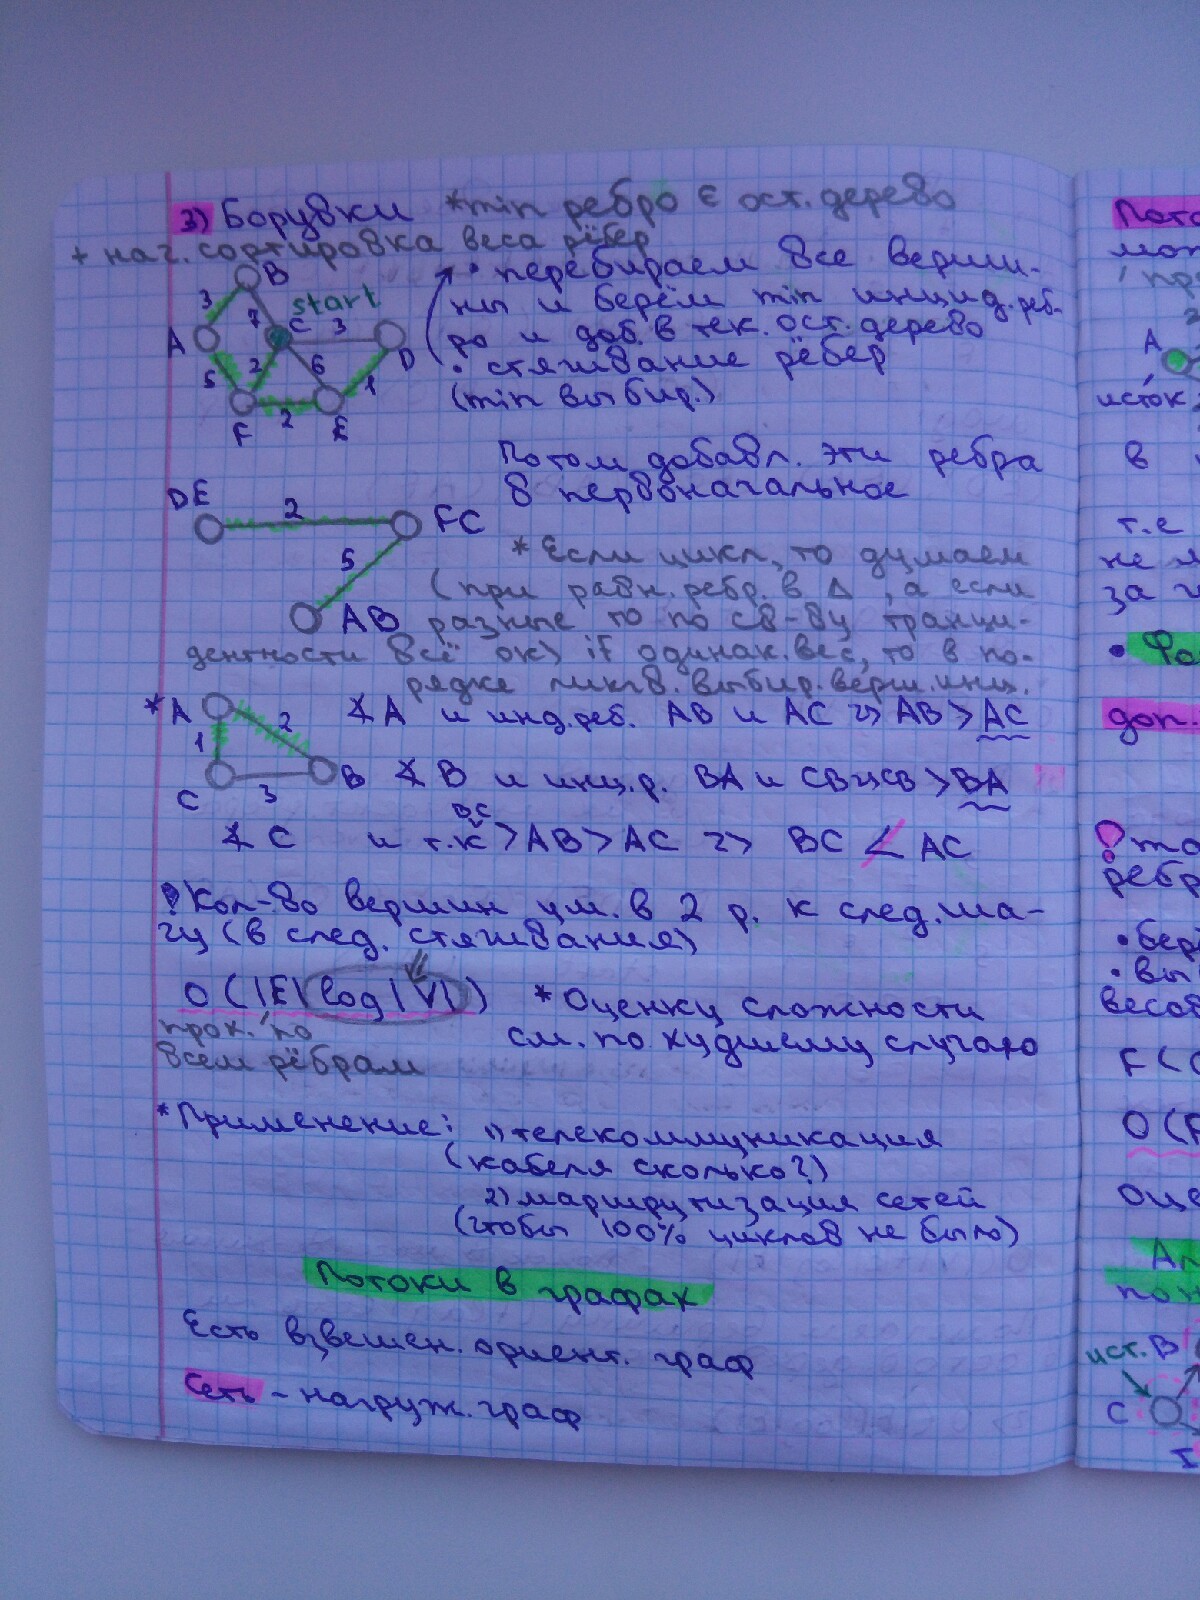 3) Борувки *min ребро ∈ ост. дерево
+ нач. сортировка веса рёбер
B
3 7 start
A C 3 D
5 2 6 1
F 2 E
• перебираем все верши-
ны и берём min инцид. реб-
ро и доб. в тек. ост. дерево
• стягивание рёбер
(min выбир.)
Потом добавл. эти ребра
в первоначальное
DE 2 FC
5
AB
*Если цикл, то думаем
(при равн. ребр. в Δ, а если
разные то по св-ву транци-
дентности всё ок) if одинак. вес, то в по-
рядке выбир. верш.
*A 2
1
C 3 B
∡ A и инд. реб. AB и AC => AB > AC
∡ B и инц. р. BA и CB и CB > BA
∡ C и т.к BC > AB > AC => BC < AC
! Кол-во вершин ум. в 2 р. к след. ша-
гу (в след. стягивания)
O(|E| log |V|) *Оценку сложности
см. по худшему случаю
прох. по
всем рёбрам
*Применение: 1) телекоммуникация
(кабеля сколько?)
2) маршрутизация сетей
(чтобы 100% циклов не было)
Потоки в графах
Есть взвешен. ориент. граф
Сеть - нагруж. граф
Пото
A
исток
в
т.е
не
за
• Фо
доп.
! то
ребр
• бер
• вы
весов
F(
O(F
оце
Ал
по
ист. B
C